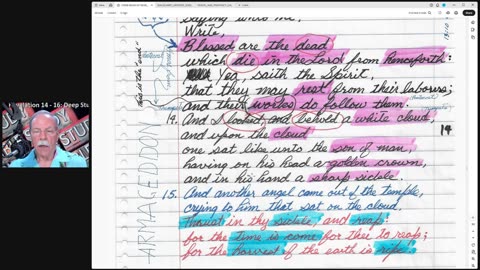 saying unto me,
Write,
Blessed are the dead
which die in the Lord from henceforth:
Yea, saith the Spirit,
that they may rest from their labours;
and their works do follow them.
14. And I looked, and behold a white cloud, 14
and upon the cloud
one sat like unto the son of man,
having on his head a golden crown,
and in his hand a sharp sickle.
15. And another angel came out of the temple,
crying to him that sat on the cloud,
Thrust in thy sickle and reap:
for the time is come for thee to reap;
for the harvest of the earth is ripe!
ARMAGEDDON
Revelation 14 - 16: Deep Stu